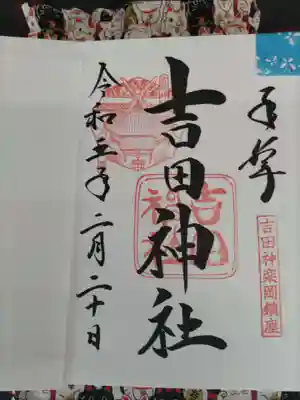 奉拝
吉田神楽岡鎮座
吉田神社
吉田神社
令和五年二月二十日